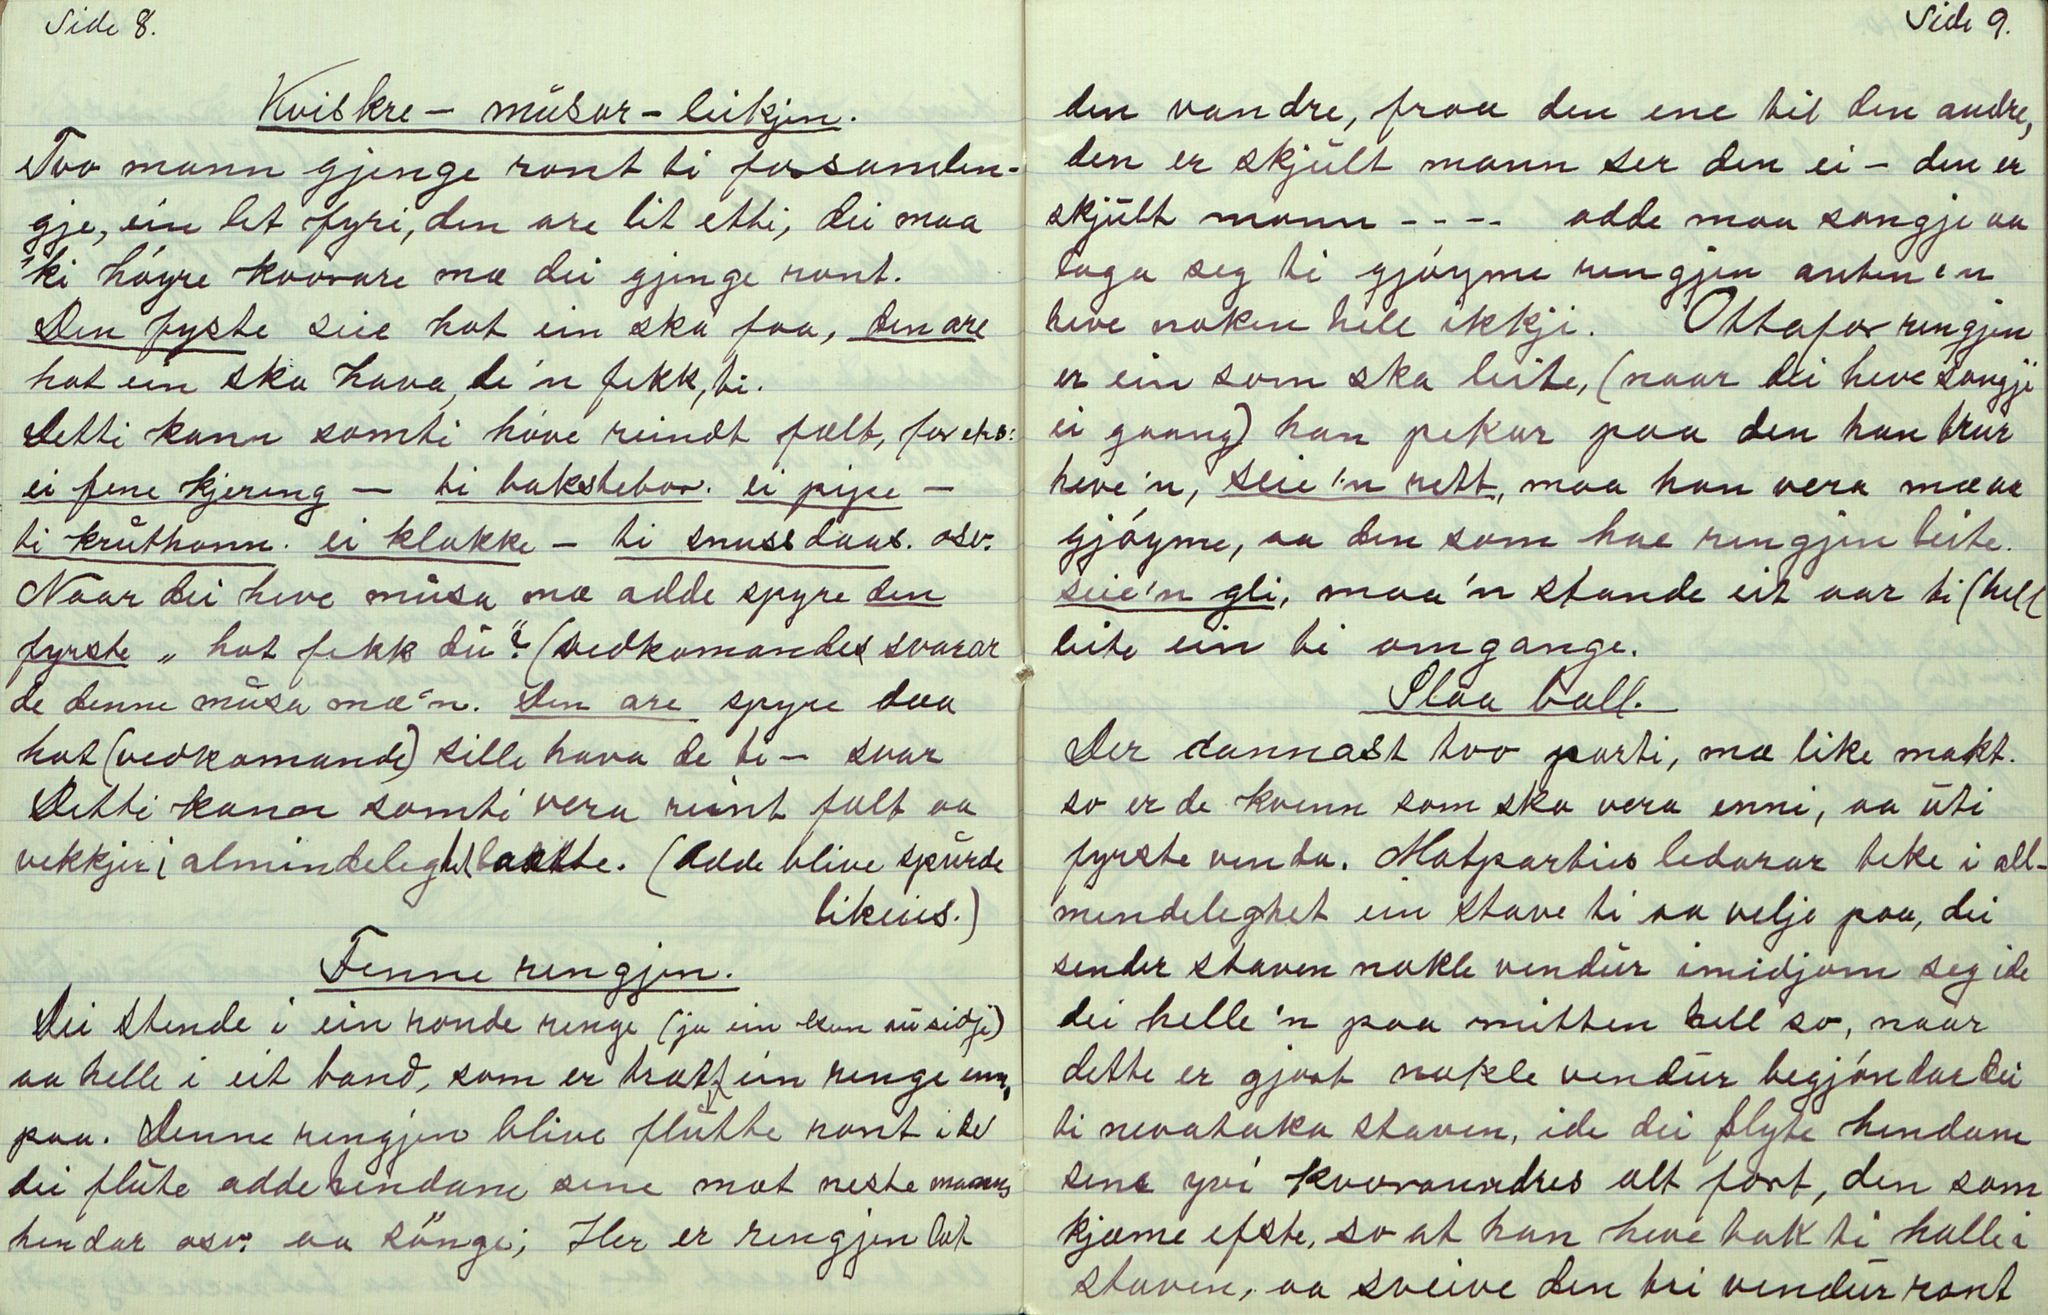 Side 8.
Kviskre – müsar – leikjen.
Tvo mann gjenge ront ti forsamlen-
gje, ein let fyri, den are lit etti, dei maa
'ki høyre kvorare mæ dei gjenge ront.
Den fyste seie hot ein ska faa, den are
hot ein ska hava de'n fekk, ti.
Detti kann somti høve reindt falt, for eks:
ei fene kjering – ti bakstebor. ei pipe –
ti krüthonn. ei klokke – ti snussdaas. osv.
Naar dei heve müsa mæ adde spyre den
fyrste „ hot fekk dü"? (vedkomandes svarar
de denne müsa mæ'n. Den are spyre daa
hot (vedkomande) sille hava de ti – svar
Detti kann somti vera reint falt aa
vekkjer i almindeleghet laatte. (Adde blive spürde
likeins.)
Fenne rengjen.
Dei stende i ein ronde renge (ja ein kan au sidje)
aa helle i eit band, som er trætt ein renge inn,
paa. Denne rengjen blive flütte ront ide
dei flüte adde hendane sine mot neste manns
hendar osv. aa sönge; Her er rengjen lat
Side 9.
den vandre, fraa den ene til den andre,
den er skjült mann ser den ei – den er
skjült mann ---- adde maa songje aa
laga seg ti gjøyme rengjen anten en
heve noken hell ikkji. Ottafor rengjen
er ein som ska leite, (naar dei heve songji
ei gaang) han pekar paa den han trur
heve'n, seie'n rett, maa han vera mæ aa
gjøyme, aa den som hae rengjen leite.
seie'n gli, maa'n stande eit aar ti (hell
leite ein ti omgange.
Slaa ball.
Der dannast tvo parti, mæ like makt.
so er de kvenn som ska vera enni, aa üti
fyrste venda. Motparties ledarar teke i all-
mendeleghet ein stave ti aa velje paa, dei
sender staven nokle vendür imidjom seg ide
dei helle'n paa mitten hell so, naar
dette er gjort nokle vendür begjøndar dei
ti nevataka staven, ide dei flyte hendane
sine yvi kvorandres alt fort, den som
kjæme efste, so at han heve tak ti halle i
staven, aa sveive den tri vendür ront